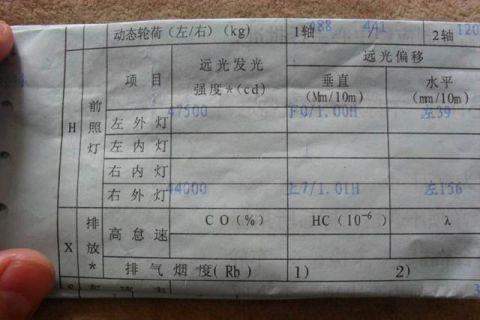 动态轮荷(左/右)(kg) 1轴 488 441 2轴 120
项目 远光发光强度*(cd) 远光偏移
垂直(Mm/10m) 水平(mm/10m)
H 前照灯
左外灯 47500 下0/1.00H 左39
左内灯
右内灯
右外灯 44000 上7/1.01H 左156
X 排放* 高怠速 CO(%) HC(10⁻⁶) λ
排气烟度(Rb) 1) 2)